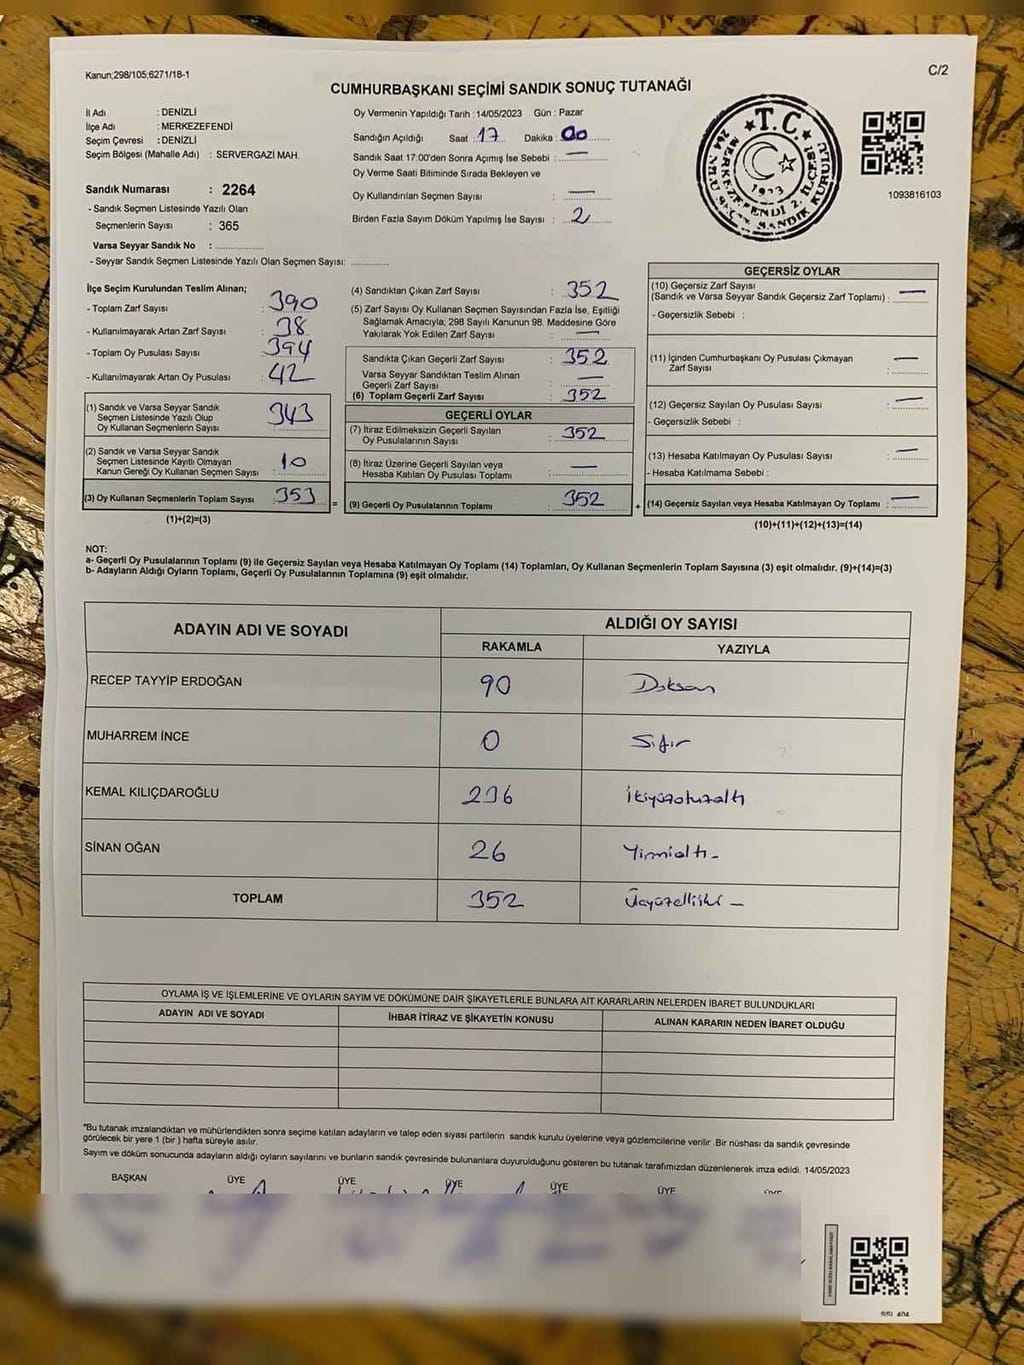 Kanun;298/105;6271/18-1
C/2
CUMHURBAŞKANI SEÇİMİ SANDIK SONUÇ TUTANAĞI
İl Adı : DENİZLİ
İlçe Adı : MERKEZEFENDİ
Seçim Çevresi : DENİZLİ
Seçim Bölgesi (Mahalle Adı) : SERVERGAZİ MAH.
Sandık Numarası : 2264
- Sandık Seçmen Listesinde Yazılı Olan
Seçmenlerin Sayısı : 365
Varsa Seyyar Sandık No :
- Seyyar Sandık Seçmen Listesinde Yazılı Olan Seçmen Sayısı:
Oy Vermenin Yapıldığı Tarih : 14/05/2023 Gün : Pazar
Sandığın Açıldığı Saat : 17 Dakika : 00
Sandık Saat 17:00'den Sonra Açımış İse Sebebi : —
Oy Verme Saati Bitiminde Sırada Bekleyen ve
Oy Kullandırılan Seçmen Sayısı : —
Birden Fazla Sayım Döküm Yapılmış İse Sayısı : 2
T.C.
1923
MERKEZEFENDİ 2. İLÇESİ
SANDIK KURULU
1093816103
İlçe Seçim Kurulundan Teslim Alınan;
- Toplam Zarf Sayısı : 390
- Kullanılmayarak Artan Zarf Sayısı : 38
- Toplam Oy Pusulası Sayısı : 394
- Kullanılmayarak Artan Oy Pusulası : 42
(1) Sandık ve Varsa Seyyar Sandık
Seçmen Listesinde Yazılı Olup
Oy Kullanan Seçmenlerin Sayısı : 343
(2) Sandık ve Varsa Seyyar Sandık
Seçmen Listesinde Kayıtlı Olmayan
Kanun Gereği Oy Kullanan Seçmen Sayısı : 10
(3) Oy Kullanan Seçmenlerin Toplam Sayısı : 353
(1)+(2)=(3)
(4) Sandıktan Çıkan Zarf Sayısı : 352
(5) Zarf Sayısı Oy Kullanan Seçmen Sayısından Fazla İse, Eşitliği
Sağlamak Amacıyla; 298 Sayılı Kanunun 98. Maddesine Göre
Yakılarak Yok Edilen Zarf Sayısı : —
Sandıkta Çıkan Geçerli Zarf Sayısı : 352
Varsa Seyyar Sandıktan Teslim Alınan
Geçerli Zarf Sayısı : —
(6) Toplam Geçerli Zarf Sayısı : 352
GEÇERLİ OYLAR
(7) İtiraz Edilmeksizin Geçerli Sayılan
Oy Pusulalarının Sayısı : 352
(8) İtiraz Üzerine Geçerli Sayılan veya
Hesaba Katılan Oy Pusulası Toplamı : —
= (9) Geçerli Oy Pusulalarının Toplamı : 352
GEÇERSİZ OYLAR
(10) Geçersiz Zarf Sayısı
(Sandık ve Varsa Seyyar Sandık Geçersiz Zarf Toplamı) : —
- Geçersizlik Sebebi :
(11) İçinden Cumhurbaşkanı Oy Pusulası Çıkmayan
Zarf Sayısı : —
(12) Geçersiz Sayılan Oy Pusulası Sayısı : —
- Geçersizlik Sebebi :
(13) Hesaba Katılmayan Oy Pusulası Sayısı : —
- Hesaba Katılmama Sebebi :
+ (14) Geçersiz Sayılan veya Hesaba Katılmayan Oy Toplamı : —
(10)+(11)+(12)+(13)=(14)
NOT:
a- Geçerli Oy Pusulalarının Toplamı (9) ile Geçersiz Sayılan veya Hesaba Katılmayan Oy Toplamı (14) Toplamları, Oy Kullanan Seçmenlerin Toplam Sayısına (3) eşit olmalıdır. (9)+(14)=(3)
b- Adayların Aldığı Oyların Toplamı, Geçerli Oy Pusulalarının Toplamına (9) eşit olmalıdır.
ADAYIN ADI VE SOYADI
ALDIĞI OY SAYISI
RAKAMLA YAZIYLA
RECEP TAYYİP ERDOĞAN 90 Doksan
MUHARREM İNCE 0 Sıfır
KEMAL KILIÇDAROĞLU 236 İkiyüzotuzaltı
SİNAN OĞAN 26 Yirmialtı -
TOPLAM 352 Üçyüzelliiki -
OYLAMA İŞ VE İŞLEMLERİNE VE OYLARIN SAYIM VE DÖKÜMÜNE DAİR ŞİKAYETLERLE BUNLARA AİT KARARLARIN NELERDEN İBARET BULUNDUKLARI
ADAYIN ADI VE SOYADI İHBAR İTİRAZ VE ŞİKAYETİN KONUSU ALINAN KARARIN NEDEN İBARET OLDUĞU
*Bu tutanak imzalandıktan ve mühürlendikten sonra seçime katılan adayların ve talep eden siyasi partilerin sandık kurulu üyelerine veya gözlemcilerine verilir .Bir nüshası da sandık çevresinde
görülecek bir yere 1 (bir ) hafta süreyle asılır.
Sayım ve döküm sonucunda adayların aldığı oyların sayılarını ve bunların sandık çevresinde bulunanlara duyurulduğunu gösteren bu tutanak tarafımızdan düzenlenerek imza edildi. 14/05/2023
BAŞKAN ÜYE ÜYE ÜYE ÜYE ÜYE ÜYE